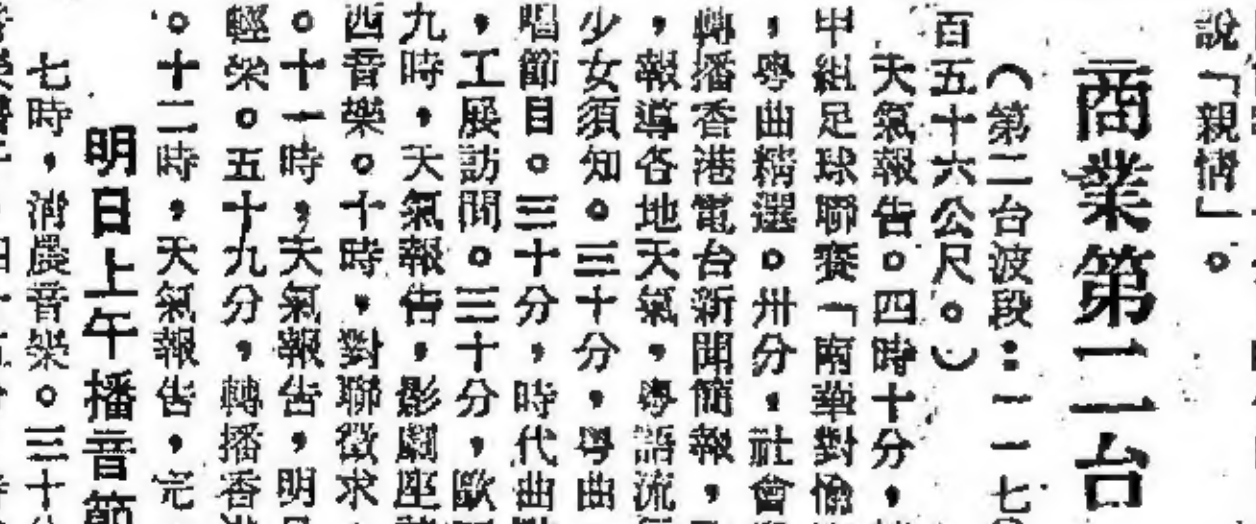 說「親情」。
商業第二台
（第二台波段：一一七
百五十六公尺。）
天氣報告。四時十分，
甲組足球聯賽「南華對愉
，粵曲精選。卅分，社會
轉播香港電台新聞簡報，
，報導各地天氣，粵語流
少女須知。三十分，粵曲
唱節目。三十分，時代曲
，工展訪問。三十分，歐
九時，天氣報告，影劇座
西音樂。十時，對聯徵求
。十一時，天氣報告，明
輕樂。五十九分，轉播香
。十二時，天氣報告，完
明日上午播音節
七時，清晨音樂。三十